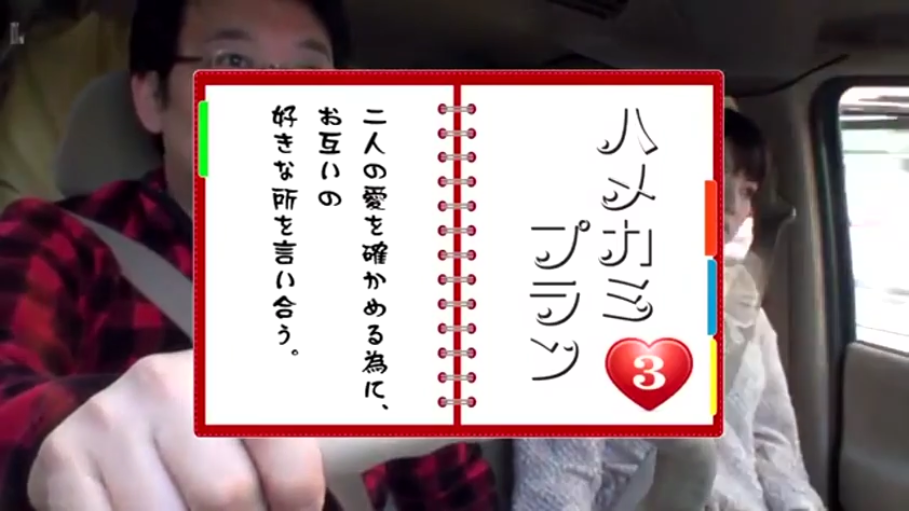 ハメカミ
プラン
3
二人の愛を確かめる為に、
お互いの
好きな所を言い合う。